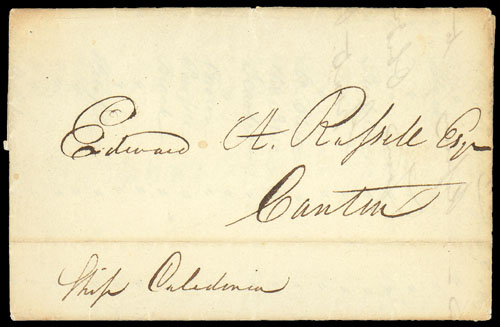 Edward A. Russell Esqr
Canton
Ship Caledonia